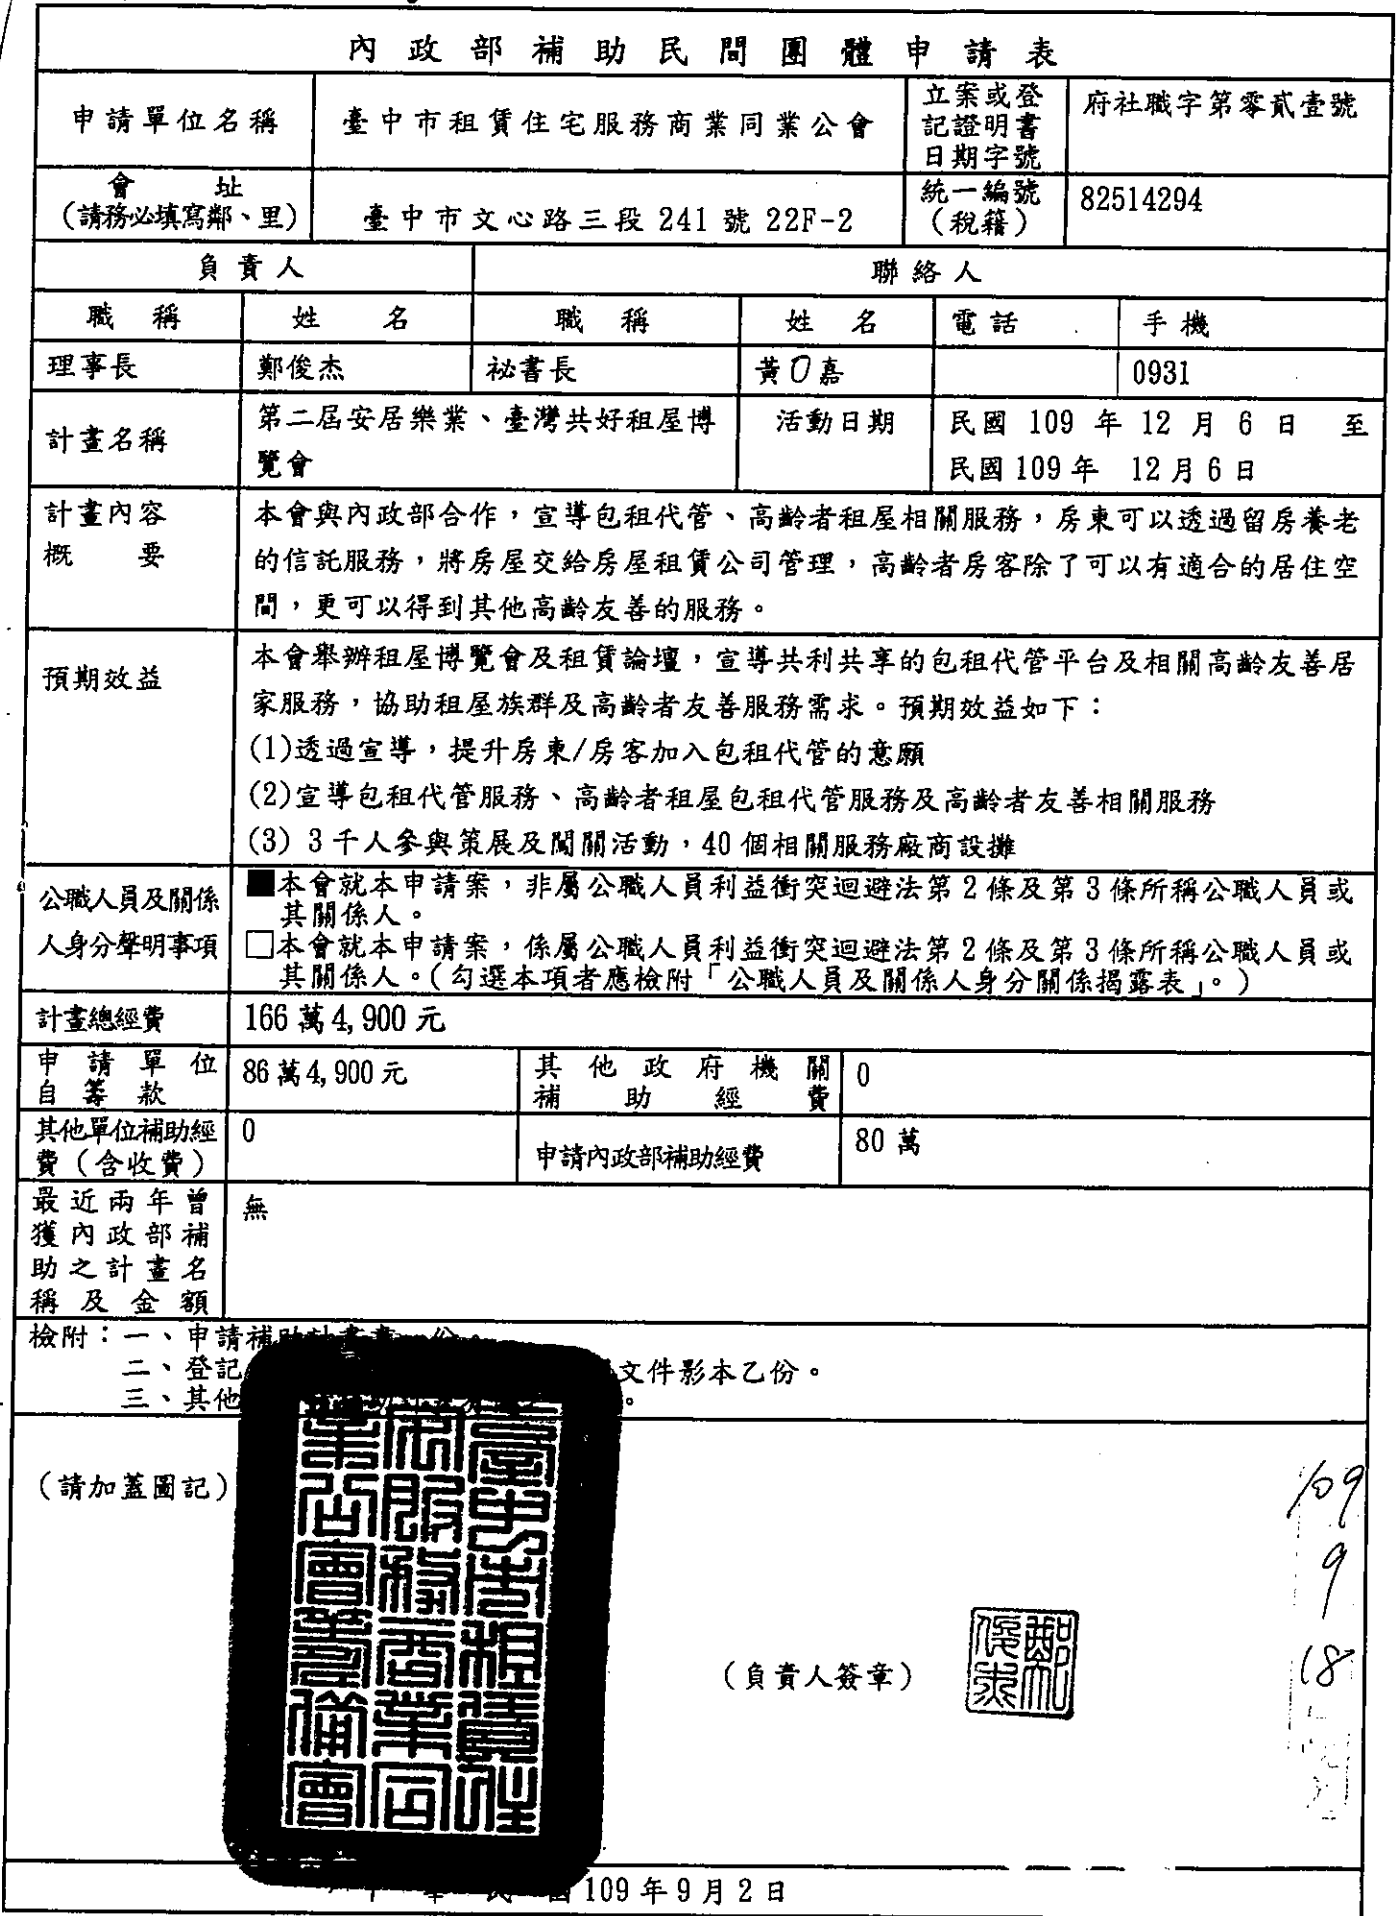 內政部補助民間團體申請表
申請單位名稱
臺中市租賃住宅服務商業同業公會
立案或登
記證明書
日期字號
府社職字第零貳壹號
會址
(請務必填寫鄰、里)
臺中市文心路三段 241 號 22F-2
統一編號
(稅籍)
82514294
負責人
聯絡人
職稱
姓名
職稱
姓名
電話
手機
理事長
鄭俊杰
祕書長
黃O嘉
0931
計畫名稱
第二屆安居樂業、臺灣共好租屋博
覽會
活動日期
民國 109 年 12 月 6 日 至
民國 109 年 12 月 6 日
計畫內容
概要
本會與內政部合作,宣導包租代管、高齡者租屋相關服務,房東可以透過留房養老
的信託服務,將房屋交給房屋租賃公司管理,高齡者房客除了可以有適合的居住空
間,更可以得到其他高齡友善的服務。
預期效益
本會舉辦租屋博覽會及租賃論壇,宣導共利共享的包租代管平台及相關高齡友善居
家服務,協助租屋族群及高齡者友善服務需求。預期效益如下:
(1)透過宣導,提升房東/房客加入包租代管的意願
(2)宣導包租代管服務、高齡者租屋包租代管服務及高齡者友善相關服務
(3) 3 千人參與策展及闖關活動,40 個相關服務廠商設攤
公職人員及關係
人身分聲明事項
■本會就本申請案,非屬公職人員利益衝突迴避法第 2 條及第 3 條所稱公職人員或
其關係人。
□本會就本申請案,係屬公職人員利益衝突迴避法第 2 條及第 3 條所稱公職人員或
其關係人。(勾選本項者應檢附「公職人員及關係人身分關係揭露表」。)
計畫總經費
166 萬 4,900 元
申請單位
自籌款
86 萬 4,900 元
其他政府機關
補助經費
0
其他單位補助經
費(含收費)
0
申請內政部補助經費
80 萬
最近兩年曾
獲內政部補
助之計畫名
稱及金額
無
檢附:一、申請補助計畫書一份。
二、登記 文件影本乙份。
三、其他 。
(請加蓋圖記)
臺中市租賃住
宅服務商業同
業公會籌備會
(負責人簽章)
鄭俊杰
109
9
18
中華民國 109 年 9 月 2 日